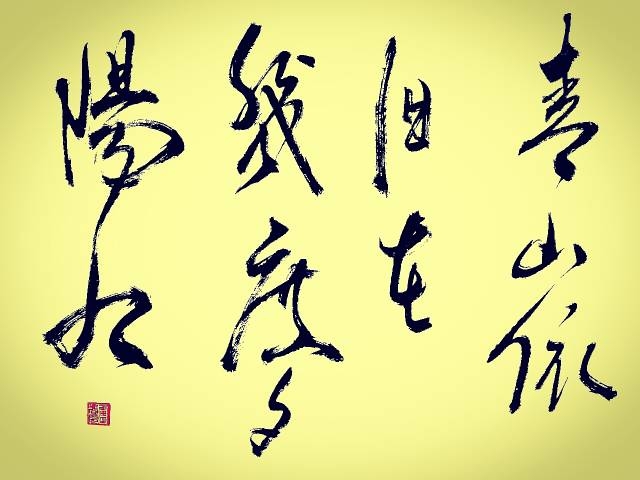 青山依
旧在
几度夕
陽红